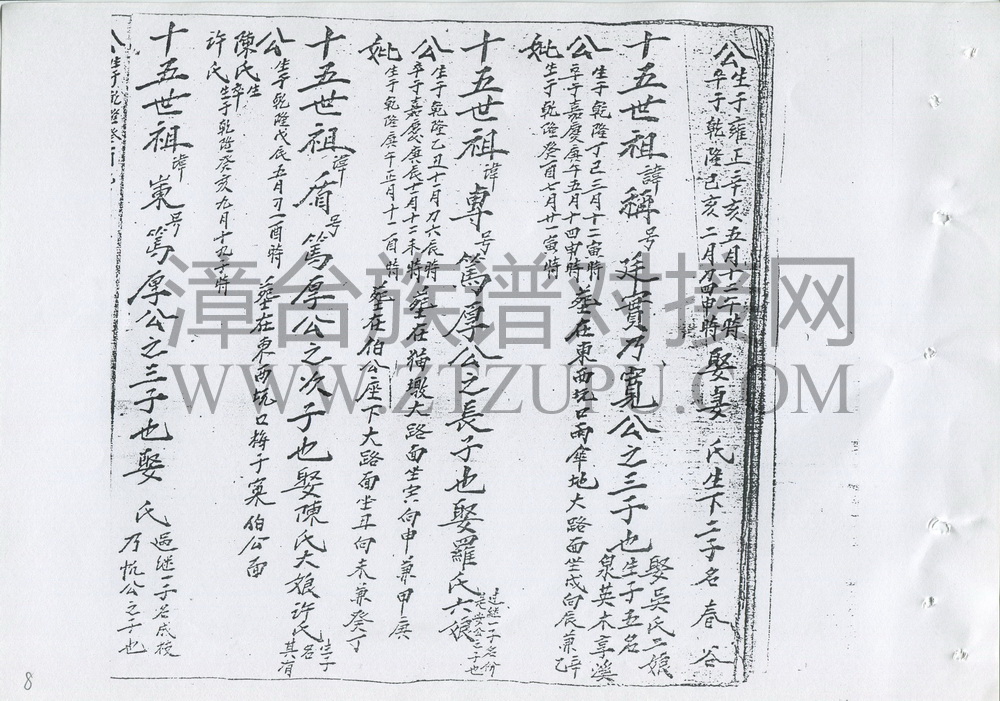 公生于雍正辛亥五月十二午時 娶妻 氏生下二子名 春 谷
卒于乾隆己亥二月初四申時
十五世祖諱稱号廷實乃寬公之三子也娶吳氏二娘
生子五名
泉英木享溪
公生于乾隆丁巳三月十二寅時
卒于嘉慶庚午五月十四申時 葬在東西坑口雨傘地大路面坐戌向辰兼辛乙
妣生于乾隆癸酉七月廿一寅時
十五世祖諱專号篤厚公之長子也娶羅氏六娘
過継一子名
公生于乾隆乙丑十一月初六辰時
卒于嘉慶庚辰十月十二未時 葬在猫墩大路面坐寅向申兼甲庚
妣生于乾隆庚午正月十一酉時 葬在伯公座下大路面坐丑向未兼癸丁
十五世祖諱盾号篤厚公之次子也娶陳氏大娘許氏生子名
其有
公生于乾隆戊辰五月初一酉時 葬在東西坑口梅子窠伯公面
陳氏生
卒
許氏生于乾隆癸亥九月十九子時
十五世祖諱 号篤厚公之三子也娶 氏過継一子名成
乃 公之子也
公生于乾隆
漳台族谱对接网
WWW.ZTZUPU.COM
8